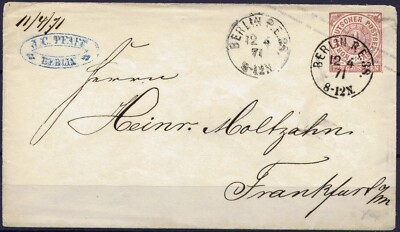 11/4/71
J. C. PFAFF
BERLIN
BERLIN P.E. 38
12 4
71
8-12N.
BERLIN P.E. 38
12 4
71
8-12N.
Herrn
Heinr. Moltzahn
Frankfurt a/m